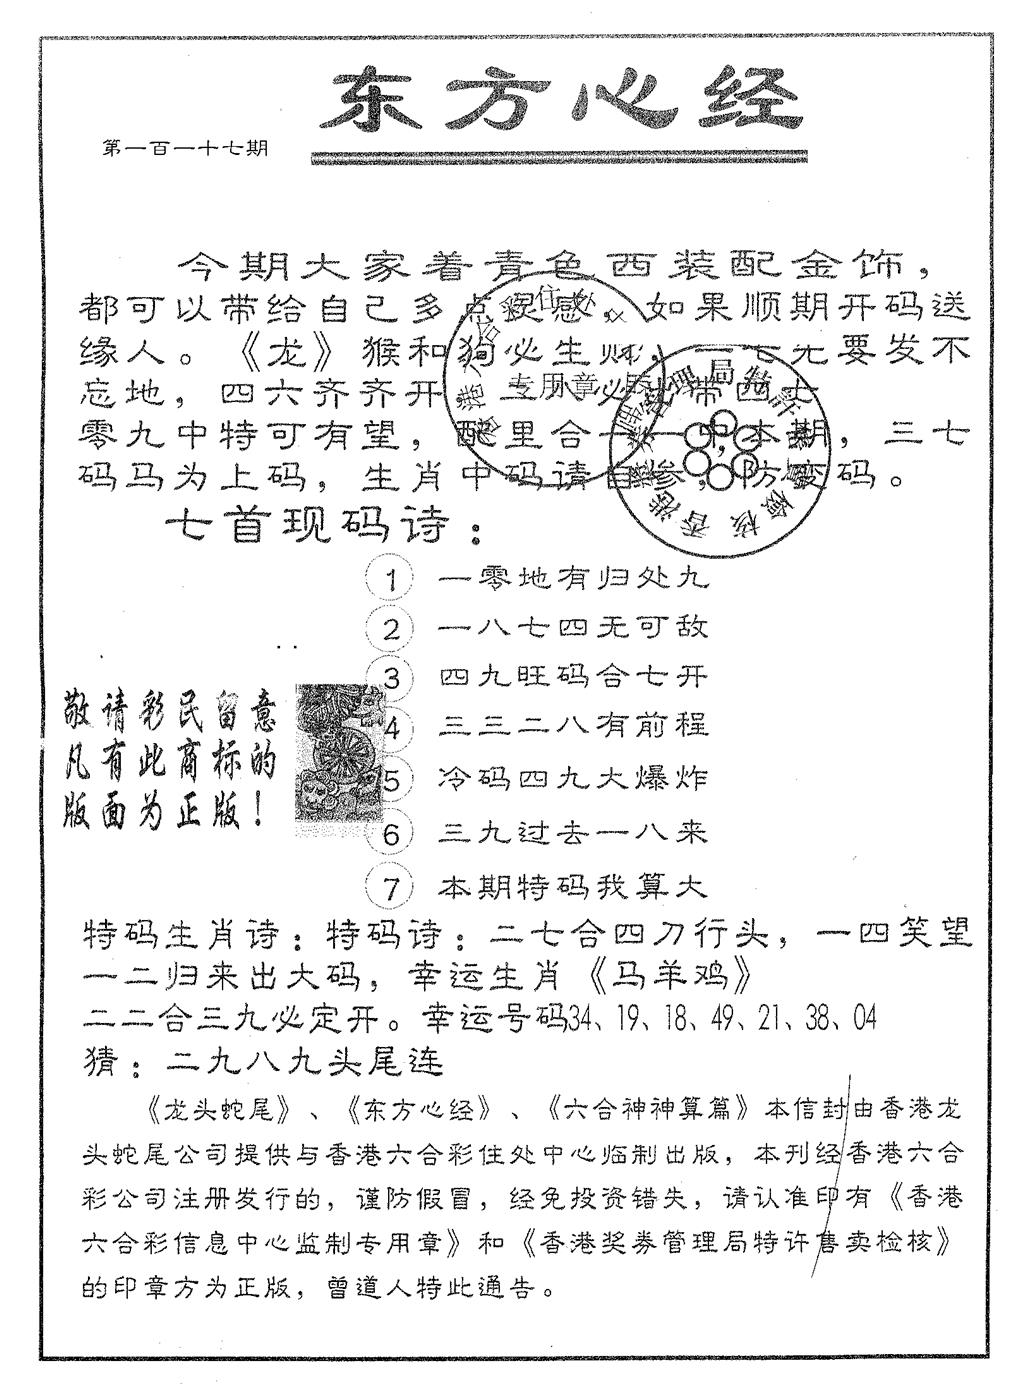 东方心经
第一百一十七期
今期大家着青色西装配金饰，
都可以带给自己多点灵感。如果顺期开码送
缘人。《龙》猴和狗必生财，一七无要发不
忘地，四六齐齐开 必 带四七
零九中特可有望， 里合一一中本期，三七
码马为上码，生肖中码请自参，防变码。
专用章
七首现码诗：
1 一零地有归处九
2 一八七四无可敌
3 四九旺码合七开
4 三三二八有前程
5 冷码四九大爆炸
6 三九过去一八来
7 本期特码我算大
敬请彩民留意
凡有此商标的
版面为正版！
特码生肖诗：特码诗：二七合四刀行头，一四笑望
一二归来出大码，幸运生肖《马羊鸡》
二二合三九必定开。幸运号码34、19、18、49、21、38、04
猜：二九八九头尾连
《龙头蛇尾》、《东方心经》、《六合神神算篇》本信封由香港龙
头蛇尾公司提供与香港六合彩住处中心临制出版，本刊经香港六合
彩公司注册发行的，谨防假冒，经免投资错失，请认准印有《香港
六合彩信息中心监制专用章》和《香港奖券管理局特许售卖检核》
的印章方为正版，曾道人特此通告。